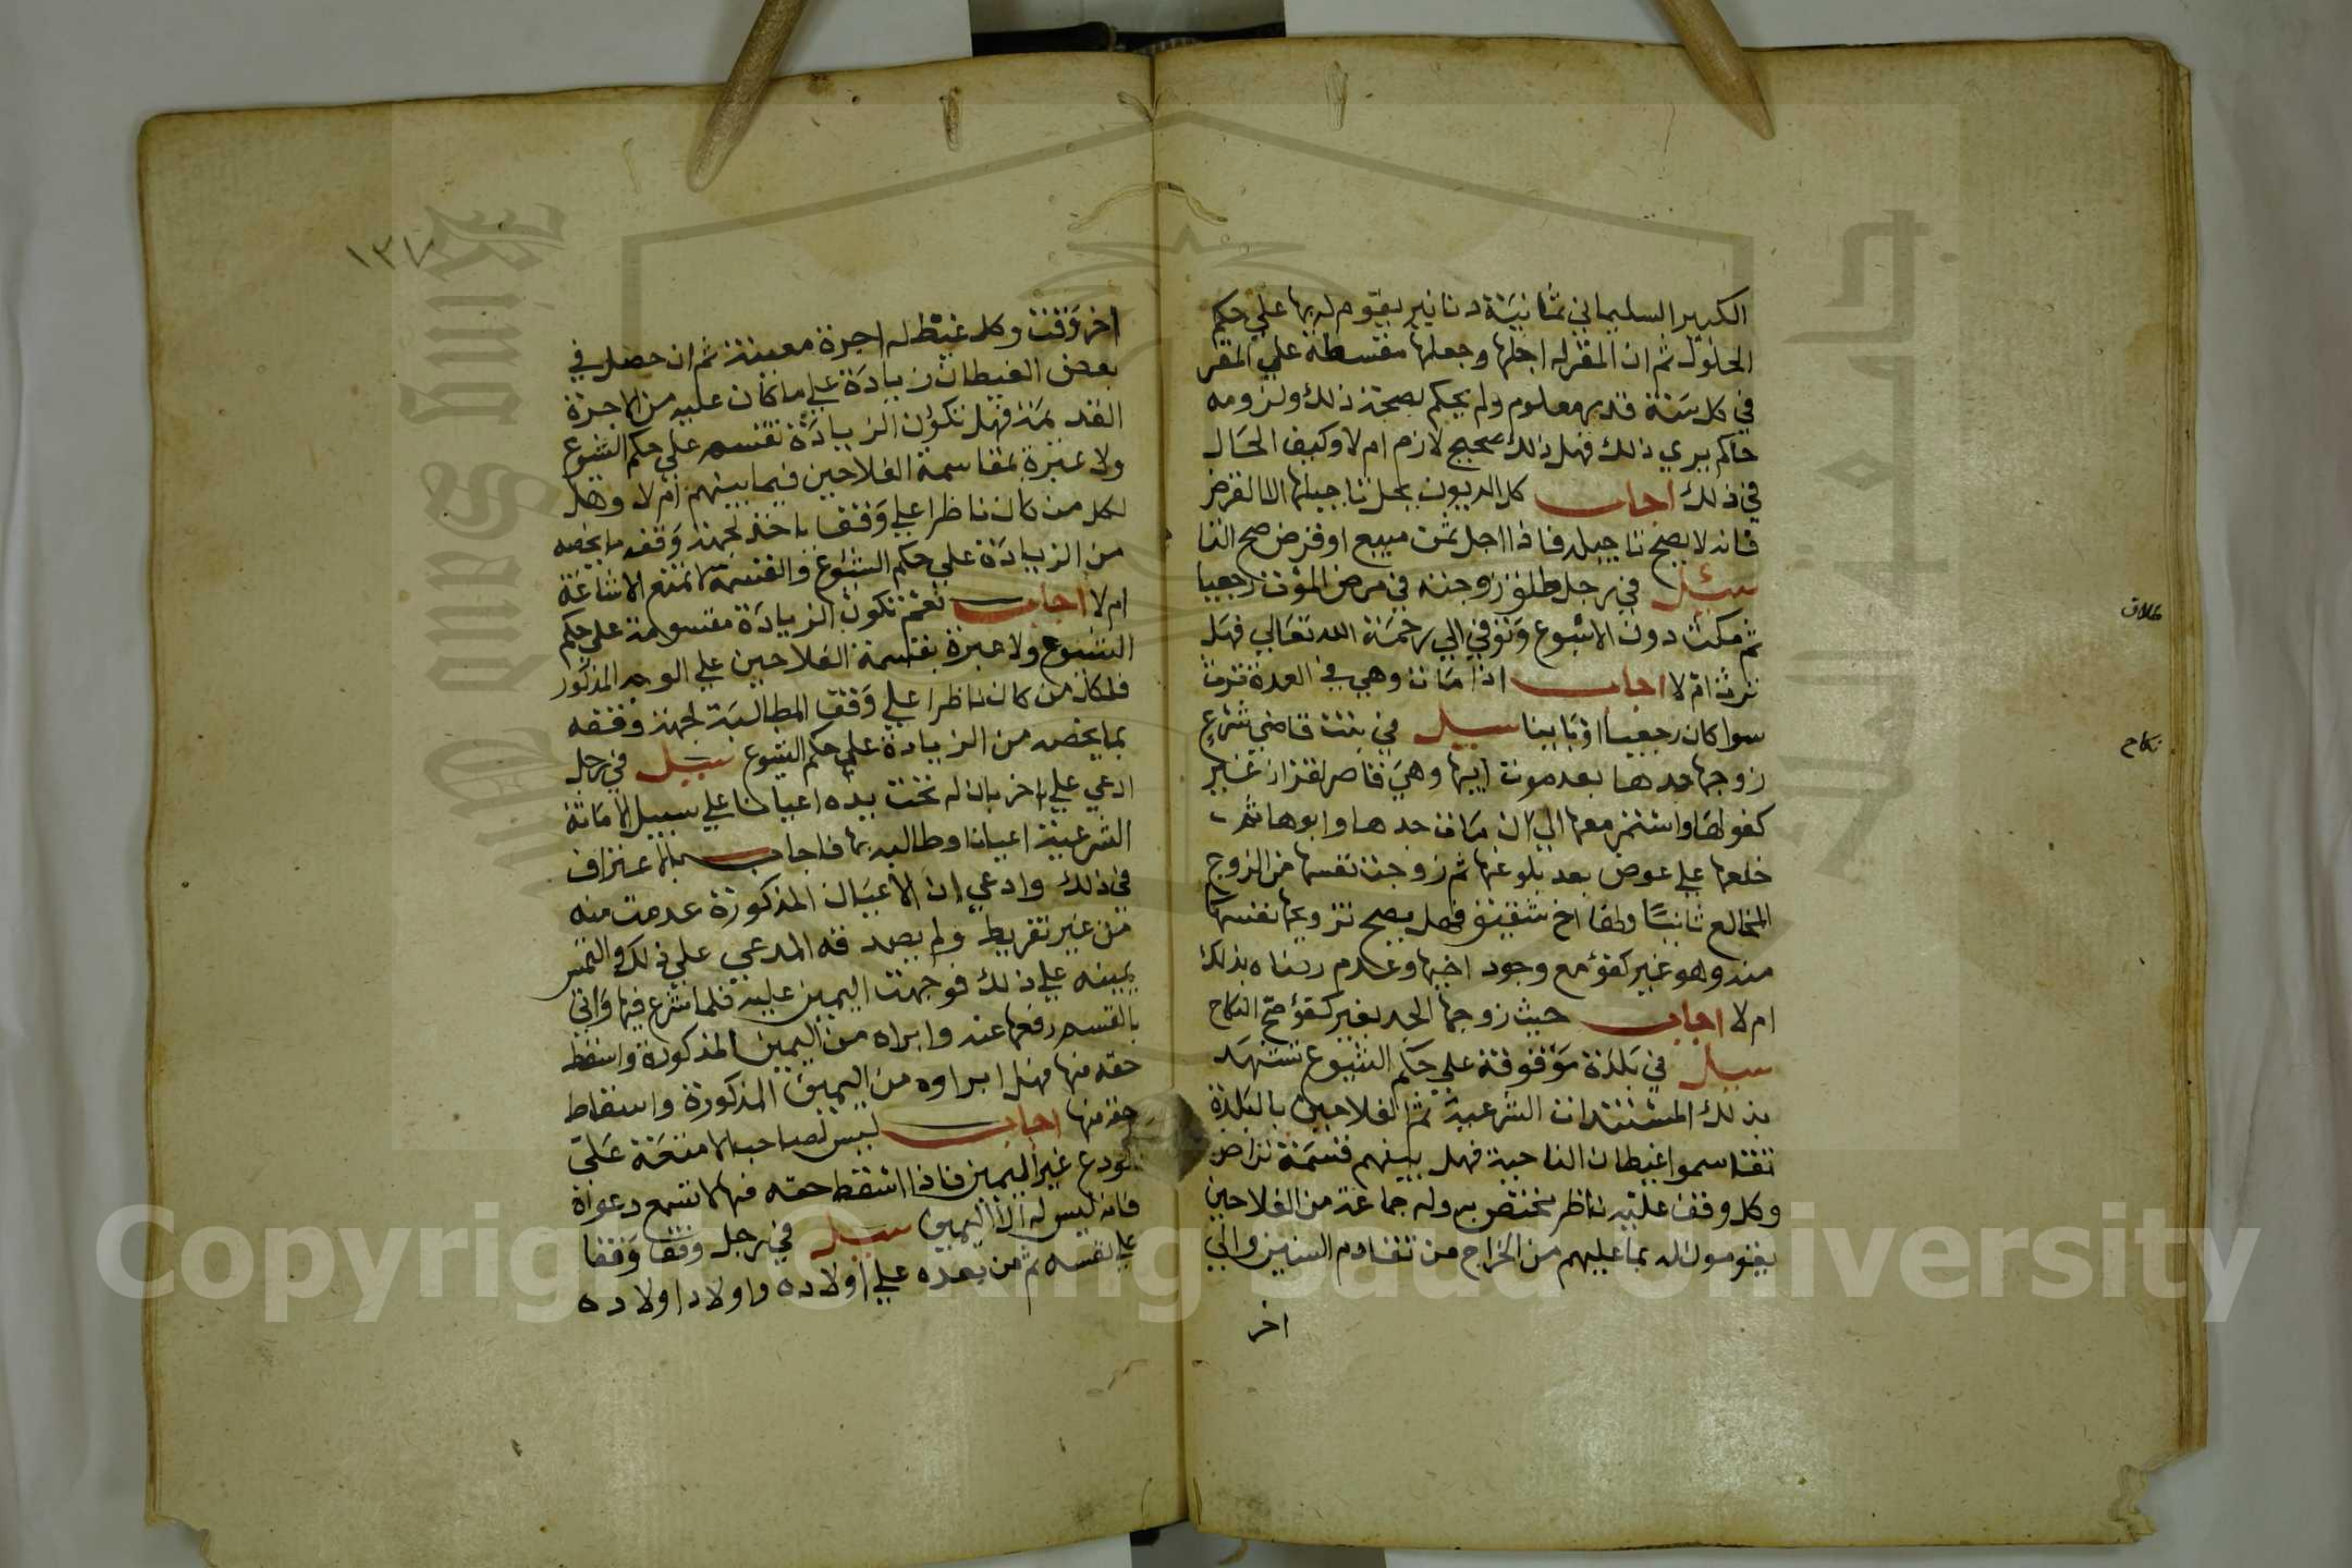 الكبير السليماني ثمانية دنانير يقوم له بها علي حكم
الحلول ثم ان المقر له اجلها وجعلها مقسطة علي المقر
في كل سنة قدر معلوم ولم يحكم بصحة ذلك ولزومه
حاكم يري ذلك فهل ذلك صحيح لازم ام لا وكيف الحال
في ذلك اجاب كل الديون يحل تاجيلها الا القرض
فانه لا يصح تاجيله فاذا اجل ثمن مبيع او قرض صح
سئل في رجل طلق زوجته في مرض الموت رجعيا
ثم مكث دون الاسبوع وتوفي الي رحمة الله تعالي فهل
ترث ام لا اجاب اذا مات وهي في العدة ترث
سوا كان رجعيا او باينا سيل في بنت قاضي شرع
زوجها جدها بعد موت ابيها وهي قاصر لقزاز غير
كفو لها واستمر معها الي ان مات جدها وابوها ثم
خلعها علي عوض بعد بلوغها ثم زوجت نفسها من الزوج
المخالع ثانيا ولها اخ شقيق فهل يصح تزويجها نفسها
منه وهو غير كفؤ مع وجود اخيها وعدم رضاه بذلك
ام لا اجاب حيث زوجها الجد بغير كفؤ صح النكاح
سيل في بلدة موقوفة علي حكم الشيوع تشهد
بذلك المستندات الشرعية ثم الفلاحين بالبلدة
تقاسموا غيطان الناحية فهل بينهم قسمة تراض
وكل وقف عليه ناظر يختص به وله جماعة من الفلاحين
يقومون له بما عليهم من الخراج من تقادم السنين والي
اخر
طلاق
نكاح
١٣٧
اخر وقت وكل غيط له اجرة معينة ثم ان حصل في
بعض الغيطان زيادة علي ما كان عليه من الاجرة
القديمة فهل تكون الزيادة تقسم علي حكم الشيوع
ولا عبرة بمقاسمة الفلاحين فيما بينهم ام لا وهل
لكل من كان ناظرا علي وقف ياخذ لجهة وقفه ما يخصه
من الزيادة علي حكم الشيوع والقسمة لا تمنع الاشاعة
ام لا اجاب نعم تكون الزيادة مقسومة علي حكم
الشيوع ولا عبرة بقسمة الفلاحين علي الوجه المذكور
فلكل من كان ناظرا علي وقف المطالبة لجهة وقفه
بما يخصه من الزيادة علي حكم الشيوع سيل في رجل
ادعي علي اخر بان له تحت يده اعيانا علي سبيل الامانة
الشرعية اعيانا وطالبه بها فاجاب بالاعتراف
في ذلك وادعي ان الاعيان المذكورة عدمت منه
من غير تفريط ولم يصدقه المدعي علي ذلك والتمس
يمينه علي ذلك فوجهت اليمين عليه فلما شرع فيها واتي
بالقسم رفعها عنه وابراه من اليمين المذكورة واسقط
حقه منها فهل ابراوه من اليمين المذكورة واسقاط
حقه منها اجاب ليس لصاحب الامتعة علي
المودع غير اليمين فاذا اسقط حقه منها لا تسمع دعواه
فانه ليس له الا اليمين سيل في رجل وقف وقفا
علي نفسه ثم من بعده علي اولاده واولاد اولاده